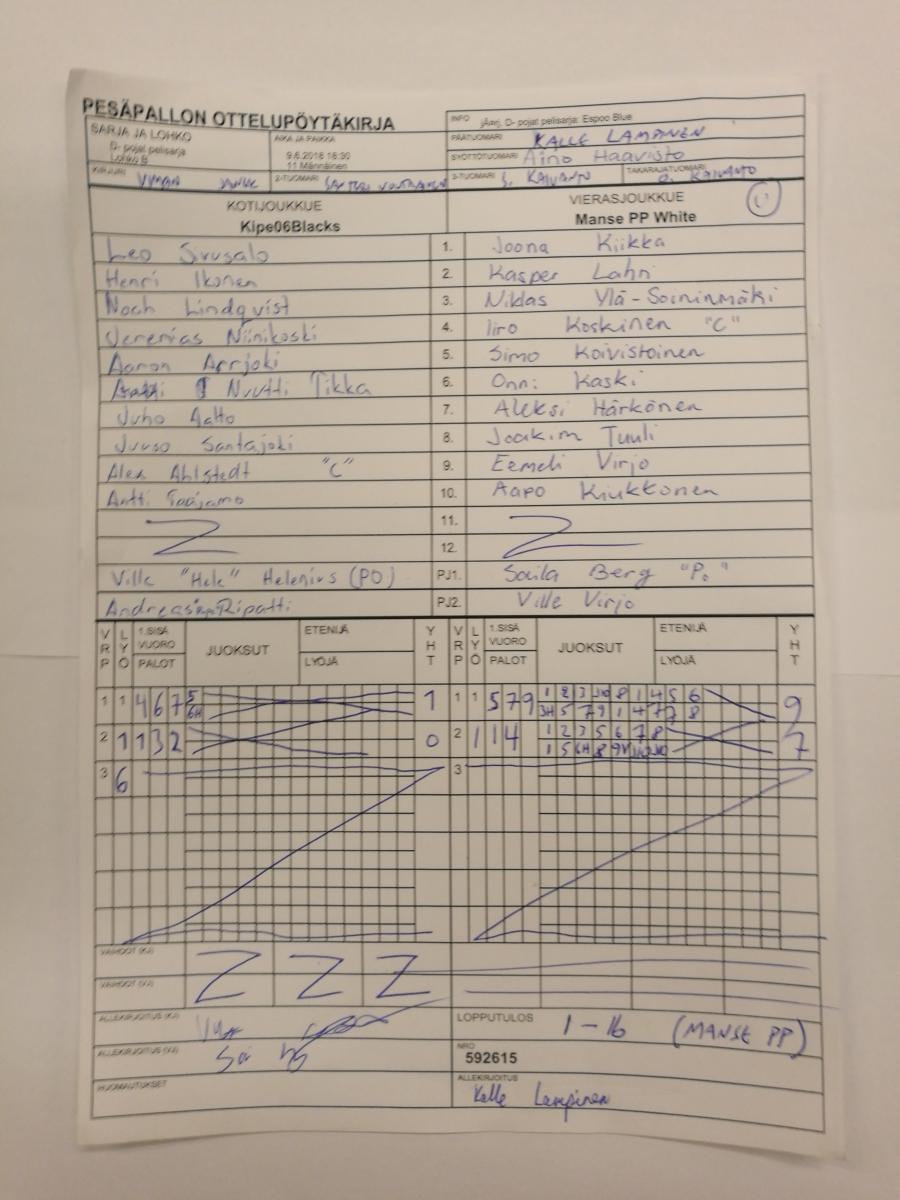 PESÄPALLON OTTELUPÖYTÄKIRJA
SARJA JA LOHKO
D- pojat pelisarja
Lohko B
AIKA JA PAIKKA
9.6.2018 16:30
11 Männäinen
INFO jÄrrj, D- pojat pelisarja: Espoo Blue
PÄÄTUOMARI KALLE LAMPINEN
SYÖTTÖTUOMARI Aino Haavisto
KIRJURI
2-TUOMARI
3-TUOMARI S. KAIVANTO
TAKARAJATUOMARI O. KAIVANTO
KOTIJOUKKUE
Kipe06Blacks
VIERASJOUKKUE
Manse PP White
Leo Sirusalo 1. Joona Kiikka
Henri Ikonen 2. Kasper Lahti
Nooh Lindqvist 3. Niklas Ylä-Soininmäki
Jerenias Niinikoski 4. Iiro Koskinen "C"
Aaron Arrjoki 5. Simo Koivistoinen
Nuutti Tikka 6. Onni Kaski
Juho Aalto 7. Aleksi Härkönen
Juuso Santajoki 8. Joakim Tuuli
Alex Ahlstedt "C" 9. Eemeli Virjo
Antti 10. Aapo Kiukkonen
11.
12.
Ville "Hele" Helenius (PO) PJ1. Saila Berg "P."
Andreas Ripatti PJ2. Ville Virjo
VRP LYÖ 1.SISÄ VUORO PALOT JUOKSUT ETENIJÄ LYÖJÄ YHT VRP LYÖ 1.SISÄ VUORO PALOT JUOKSUT ETENIJÄ LYÖJÄ YHT
1 1 4 6 7 5 6H 1 1 1 5 7 9 9
2 1 1 3 2 0 2 1 1 4 1 2 3 5 6 7 8 7
3 6 3
VAIHDOT (KJ)
VAIHDOT (VJ)
ALLEKIRJOITUS (KJ)
LOPPUTULOS 1-16 (MANSE PP)
ALLEKIRJOITUS (VJ)
NRO
592615
HUOMAUTUKSET
ALLEKIRJOITUS
Kalle Lampinen